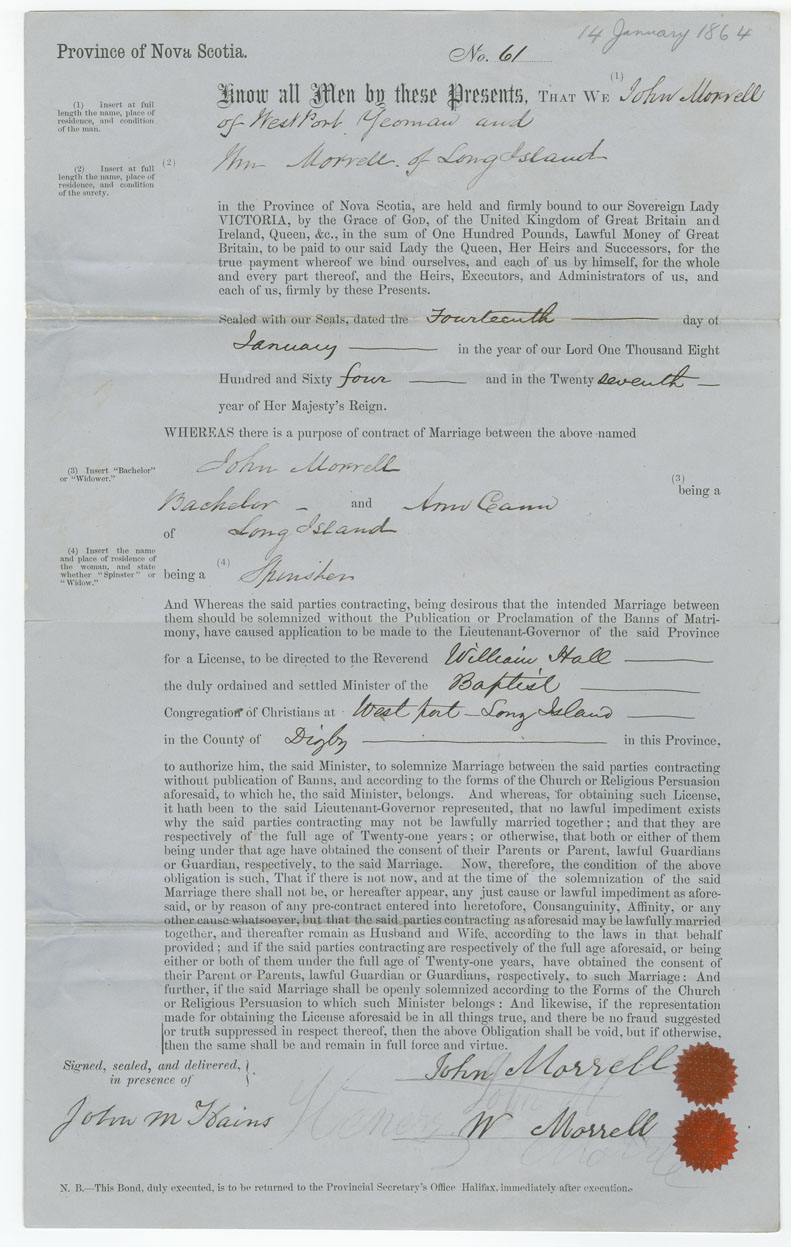 14 January 1864
Province of Nova Scotia.
No. 61
Know all Men by these Presents, THAT WE (1) John Morrell
(1) Insert at full
length the name, place of
residence, and condition
of the man.
of WestPort Yeoman and
(2) Insert at full
length the name, place of
residence, and condition
of the surety.
(2)
Wm Morrell. of Long Island
in the Province of Nova Scotia, are held and firmly bound to our Sovereign Lady
VICTORIA, by the Grace of GOD, of the United Kingdom of Great Britain and
Ireland, Queen, &c., in the sum of One Hundred Pounds, Lawful Money of Great
Britain, to be paid to our said Lady the Queen, Her Heirs and Successors, for the
true payment whereof we bind ourselves, and each of us by himself, for the whole
and every part thereof, and the Heirs, Executors, and Administrators of us, and
each of us, firmly by these Presents.
Sealed with our Seals, dated the Fourteenth day of
January in the year of our Lord One Thousand Eight
Hundred and Sixty four and in the Twenty seventh
year of Her Majesty's Reign.
WHEREAS there is a purpose of contract of Marriage between the above named
(3) Insert "Bachelor"
or "Widower."
John Morrell
(3)
being a
Bachelor and Ann
of Long Island
(4) Insert the name
and place of residence of
the woman, and state
whether "Spinster" or
"Widow."
being a (4) Spinster
And Whereas the said parties contracting, being desirous that the intended Marriage between
them should be solemnized without the Publication or Proclamation of the Banns of Matri-
mony, have caused application to be made to the Lieutenant-Governor of the said Province
for a License, to be directed to the Reverend William Hall
the duly ordained and settled Minister of the Baptist
Congregation of Christians at West port - Long Island
in the County of Digby in this Province,
to authorize him, the said Minister, to solemnize Marriage between the said parties contracting
without publication of Banns, and according to the forms of the Church or Religious Persuasion
aforesaid, to which he, the said Minister, belongs. And whereas, for obtaining such License,
it hath been to the said Lieutenant-Governor represented, that no lawful impediment exists
why the said parties contracting may not be lawfully married together; and that they are
respectively of the full age of Twenty-one years; or otherwise, that both or either of them
being under that age have obtained the consent of their Parents or Parent, lawful Guardians
or Guardian, respectively, to the said Marriage. Now, therefore, the condition of the above
obligation is such, That if there is not now, and at the time of the solemnization of the said
Marriage there shall not be, or hereafter appear, any just cause or lawful impediment as afore-
said, or by reason of any pre-contract entered into heretofore, Consanguinity, Affinity, or any
other cause whatsoever, but that the said parties contracting as aforesaid may be lawfully married
together, and thereafter remain as Husband and Wife, according to the laws in that behalf
provided; and if the said parties contracting are respectively of the full age aforesaid, or being
either or both of them under the full age of Twenty-one years, have obtained the consent of
their Parent or Parents, lawful Guardian or Guardians, respectively, to such Marriage: And
further, if the said Marriage shall be openly solemnized according to the Forms of the Church
or Religious Persuasion to which such Minister belongs: And likewise, if the representation
made for obtaining the License aforesaid be in all things true, and there be no fraud suggested
or truth suppressed in respect thereof, then the above Obligation shall be void, but if otherwise,
then the same shall be and remain in full force and virtue.
Signed, sealed, and delivered,
in presence of
John Morrell
John M Kains
W Morrell
N. B.—This Bond, duly executed, is to be returned to the Provincial Secretary's Office Halifax, immediately after execution.